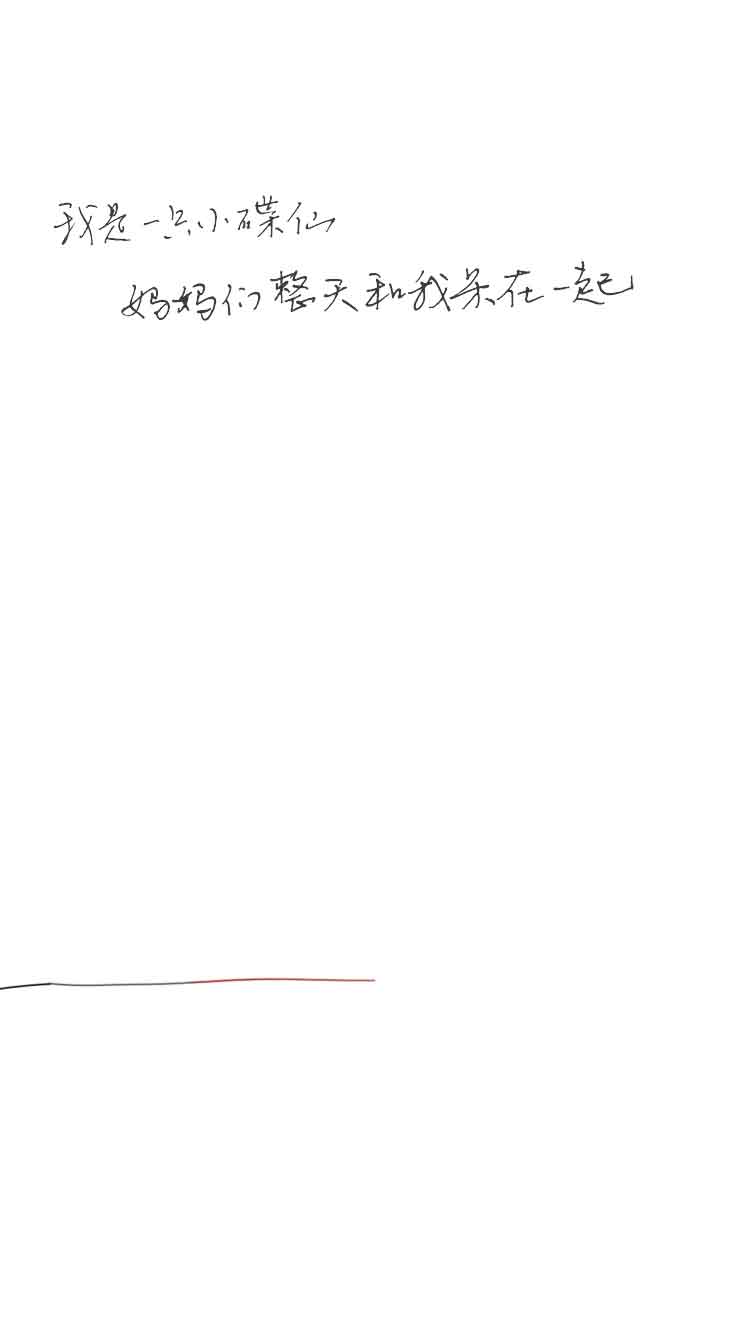 我是一只小碟仙
妈妈们整天和我呆在一起